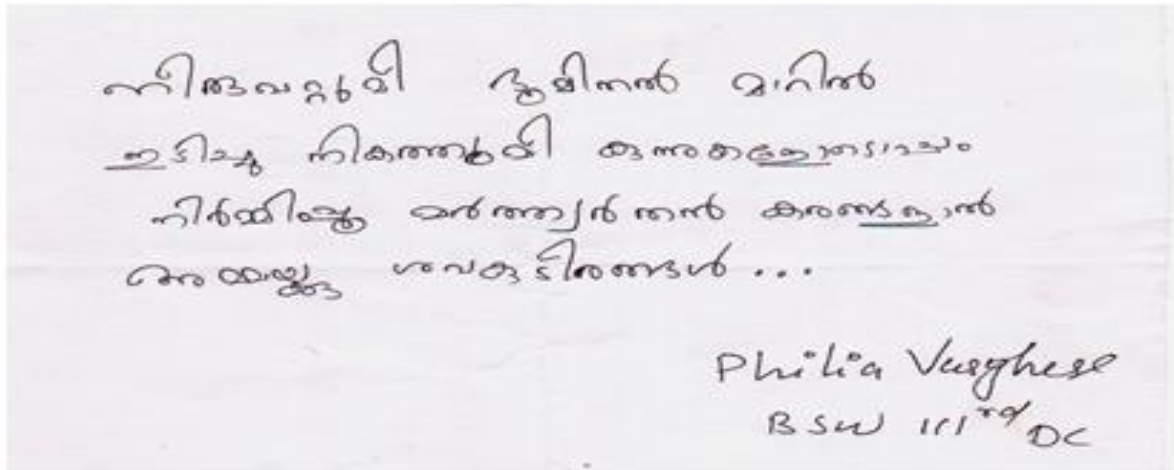 നീരുവറ്റുമീ ഭൂമിതൻ മാറിൽ
ഇടിച്ചു നികത്തുമീ കുന്നുകളോടൊപ്പം
നിർമ്മിച്ചു മർത്ത്യൻ തൻ കരങ്ങളാൽ
ശവകുടീരങ്ങൾ...
Philia Varghese
BSW IIIrd DC